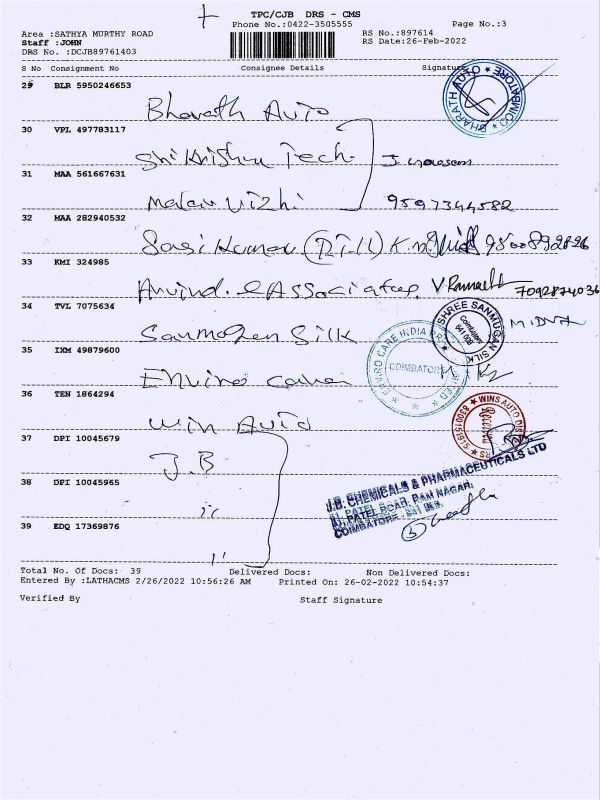 TPC/CJB DRS - CMS
Phone No.:0422-3505555
Page No.:3
Area :SATHYA MURTHY ROAD
RS No.:897614
Staff :JOHN
RS Date:26-Feb-2022
DRS No. :DCJB89761403
S No Consignment No Consignee Details Signature
29 BLR 5950246653
Bharath Auto
BHARATH AUTO ★ COIMBATORE ★
30 VPL 497783117
Shikrishna Tech
31 MAA 561667631
Malar Vizhi 9597344582
32 MAA 282940532
Sasi Kumar
33 KMI 324985
Arvind & Associates 7092874036
34 TVL 7075634
Sanmogen Silk
SHREE SANMUGAN SILK
Coimbatore
641 009
35 IXM 49879600
Enviro care
ENVIRO CARE INDIA PRIVATE LIMITED
COIMBATORE
36 TEN 1864294
Win Auto
WINS AUTO
37 DPI 10045679
J.B
38 DPI 10045965
J.B. CHEMICALS & PHARMACEUTICALS LTD
PATEL ROAD, RAM NAGAR,
COIMBATORE
39 EDQ 17369876
Total No. Of Docs: 39 Delivered Docs: Non Delivered Docs:
Entered By :LATHACMS 2/26/2022 10:56:26 AM Printed On: 26-02-2022 10:54:37
Verified By Staff Signature